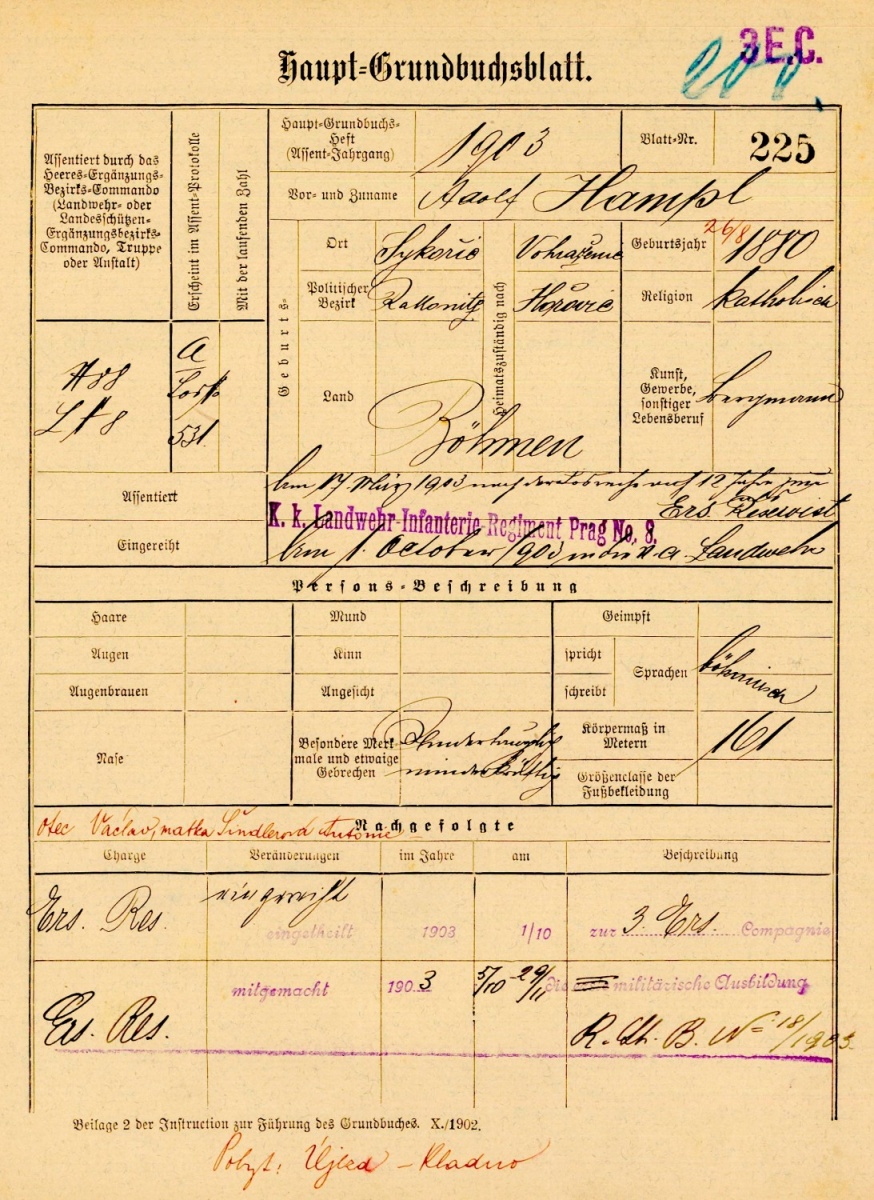 3 E.C.
Haupt-Grundbuchsblatt.
Assentiert durch das
Heeres-Ergänzungs-
Bezirks-Commando
(Landwehr- oder
Landesschützen-
Ergänzungsbezirks-
Commando, Truppe
oder Anstalt)
Erscheint im Assent-Protokolle
Mit der laufenden Zahl
Haupt-Grundbuchs-
Heft
(Assent-Jahrgang)
1903
Blatt-Nr.
225
Vor- und Zuname
Adolf Hampl
Geburts-
Ort
Sykořic
Heimatszuständig nach
Geburtsjahr
26/8 1880
Politischer
Bezirk
Rakonitz
Hořovic
Religion
katholisch
Land
Böhmen
Kunst,
Gewerbe,
sonstiger
Lebensberuf
Bergmann
A
531
Assentiert
Am 17. März 1903 nach der Losreihe auf 12 Jahre zum
Ers. Reservist
K. k. Landwehr-Infanterie-Regiment Prag No. 8.
Eingereiht
Am 1. October 1903 in die Landwehr
Persons-Beschreibung
Haare
Mund
Geimpft
Augen
Kinn
spricht
Sprachen
böhmisch
Augenbrauen
Angesicht
schreibt
Nase
Besondere Merk-
male und etwaige
Gebrechen
Mindertauglich
minderkräftig
Körpermaß in
Metern
161
Größenclasse der
Fußbekleidung
otec Václav, matka Šindlerová Antonie
Nachgefolgte
Charge
Veränderungen
im Jahre
am
Beschreibung
Ers. Res.
eingereiht
eingetheilt 1903 1/10 zur 3. Ers. Compagnie
mitgemacht 1903 5/10 29/11 die militärische Ausbildung
Ers. Res.
R. Ch. B. No 18/1903.
Beilage 2 der Instruction zur Führung des Grundbuches. X./1902.
Pobyt: Újezd – Kladno